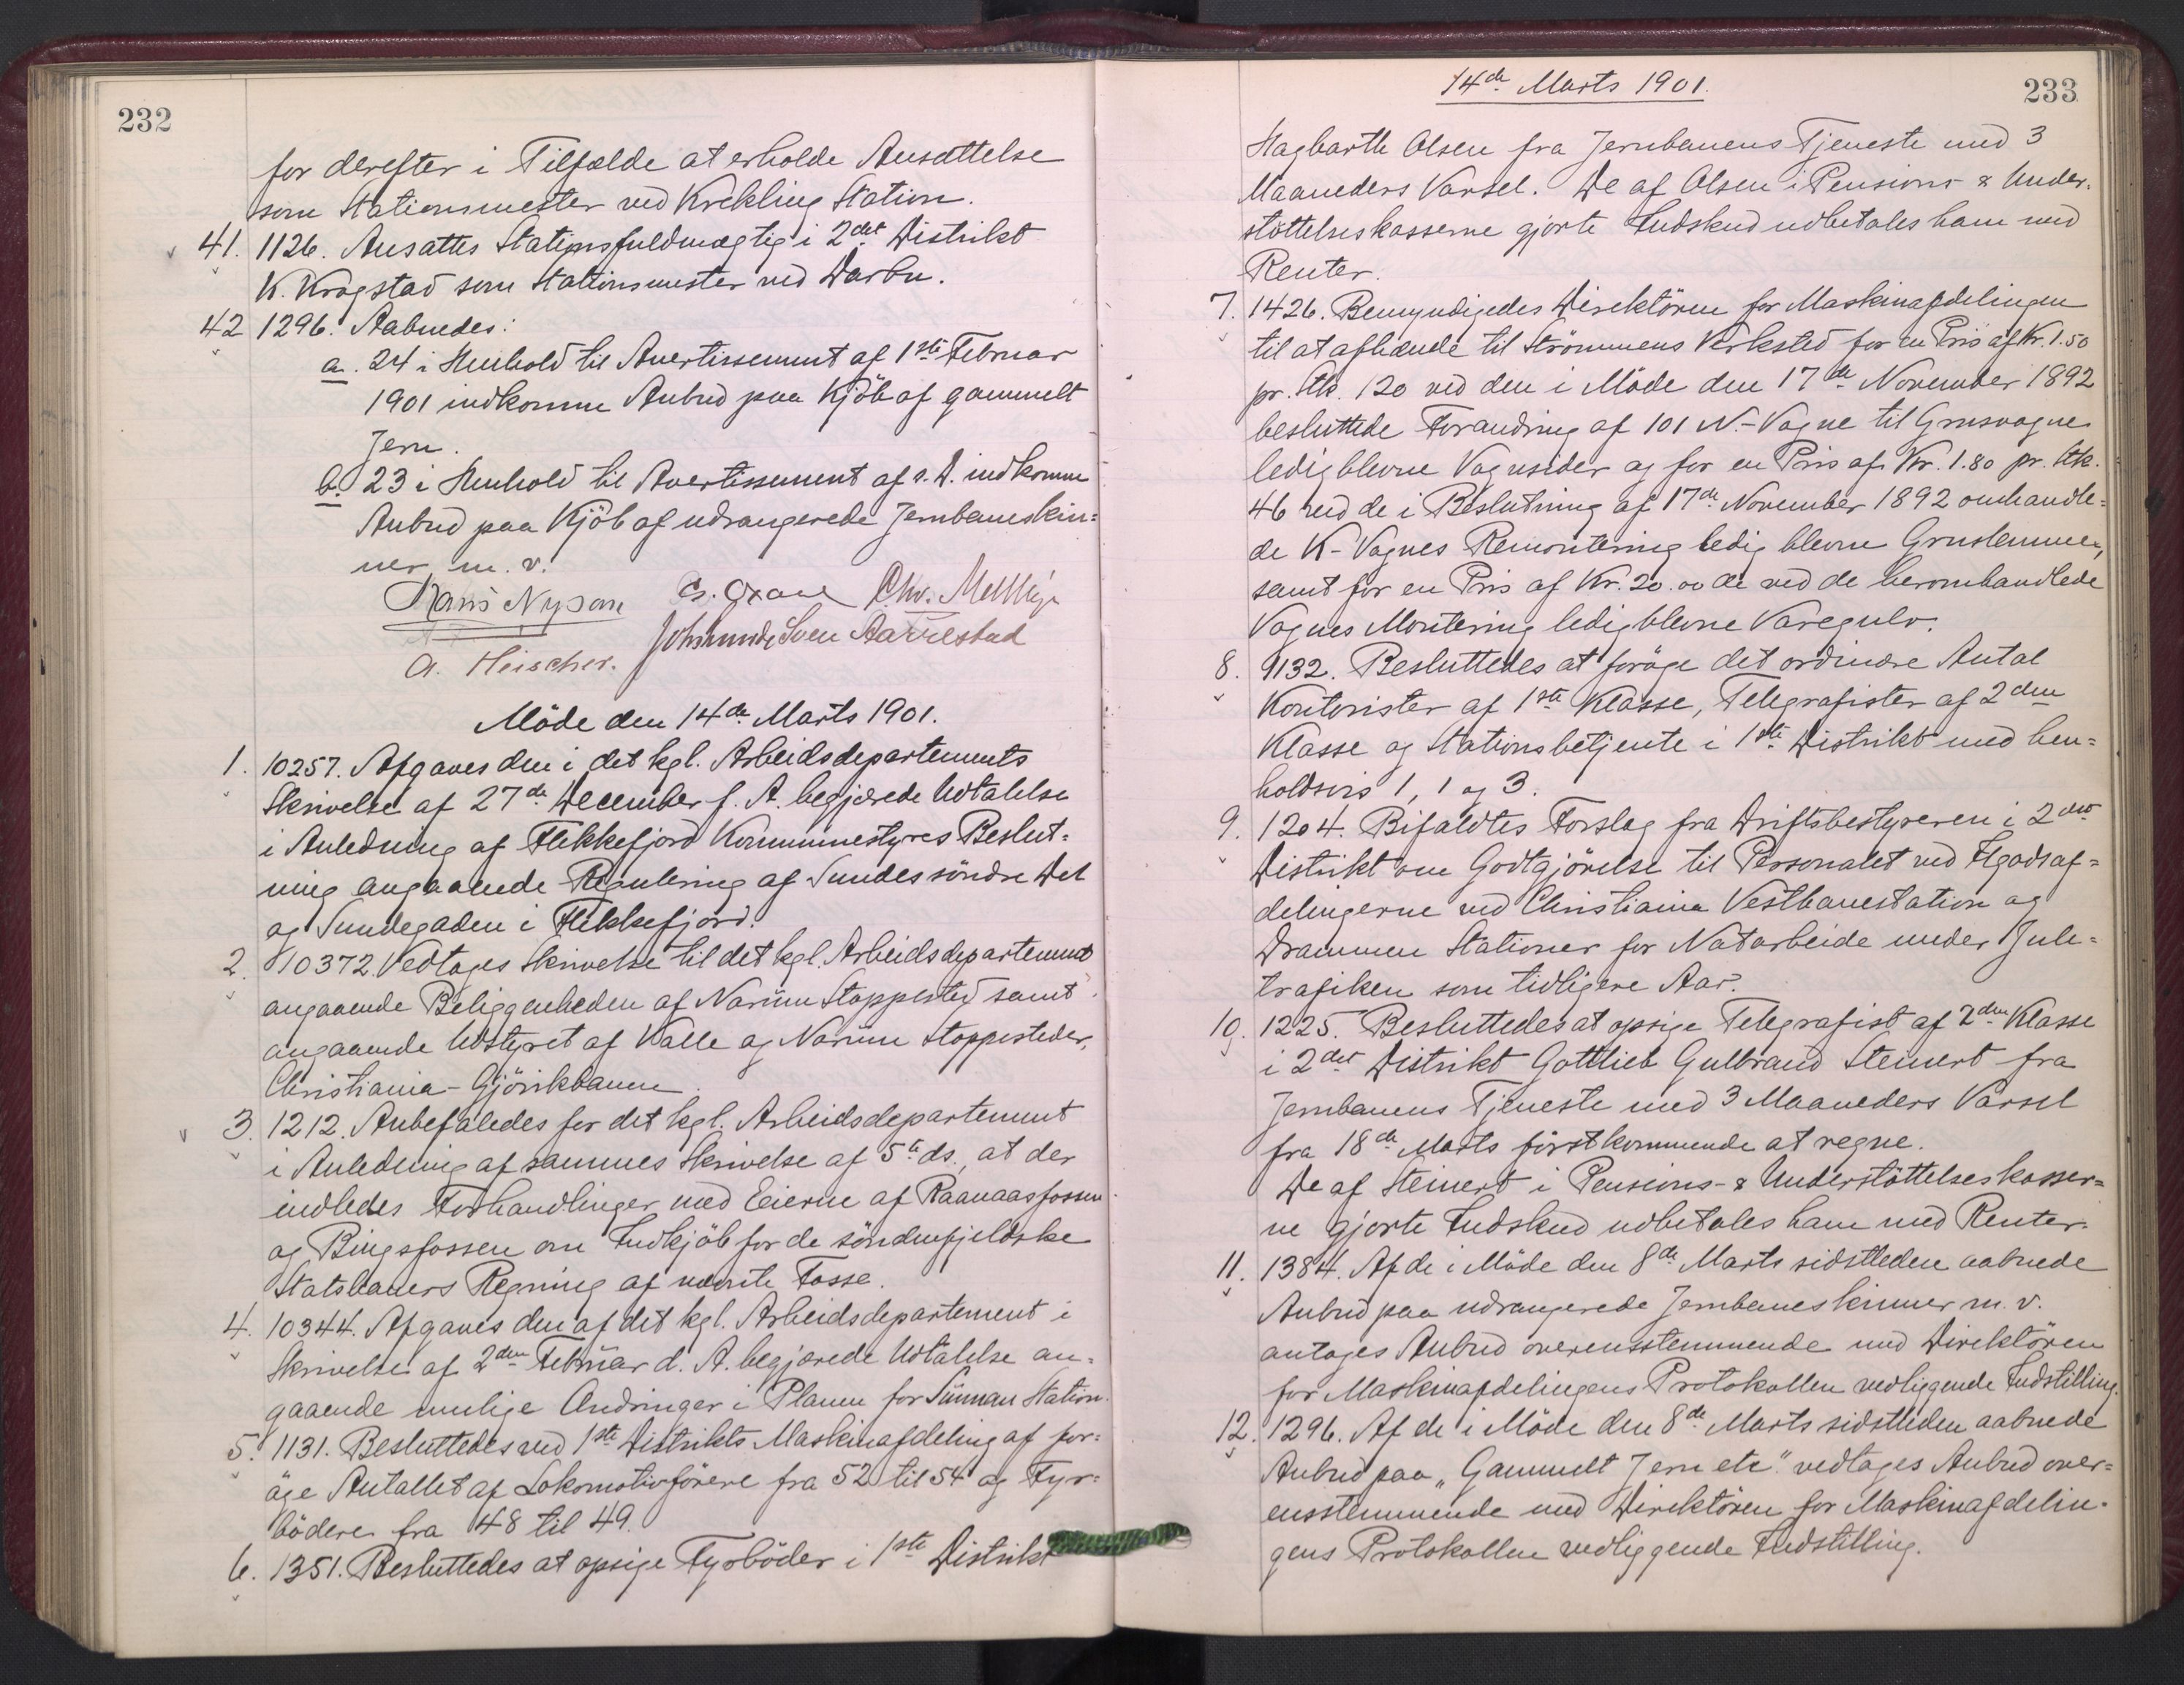 232
for derefter i Tilfælde at erholde Ansættelse
som Stationsmester ved Krekling Station.
41. 1126. Ansattes Stationsfuldmægtig i 2det Distrikt
K. Krogstad som Stationsmester ved Darbu.
42 1296. Aabnedes:
a. 24 i Henhold til Avertissement af 1ste Februar
1901 indkomne Anbud paa Kjöb af gammelt
Jern.
b. 23 i Henhold til Avertissement af s. D. indkomne
Anbud paa Kjöb af udrangerede Jernbaneskin=
ner m. v.
Hans Nysom Chr.
Sven Aarrestad
Möde den 14de Marts 1901.
1. 10257. Afgaves den i det kgl. Arbeidsdepartements
Skrivelse af 27de December f. A. begjærede Udtalelse
i Anledning af Flekkefjord Kommunestyres Beslut=
ning angaaende Regulering af Sundes söndre Del
og Sundegaden i Flekkefjord.
2. 10372. Vedtoges Skrivelse til det kgl. Arbeidsdepartement
angaaende Beliggenheden af Narum Stoppested samt
angaaende Udstyret af Kalle og Narum Stoppesteder,
Christiania-Gjövikbanen.
3. 1212. Anbefaledes for det kgl. Arbeidsdepartement
i Anledning af sammes Skrivelse af 5te ds., at der
indledes Forhandlinger med Eierne af Raanaasfossen
og Bingsfossen om Indkjöb for de söndenfjeldske
Statsbaners Regning af nævnte Fosse.
4. 10344. Afgaves den af det kgl. Arbeidsdepartement i
Skrivelse af 2den Februar d. A. begjærede Udtalelse an=
gaaende mulige Ændringer i Planen for Sunnan Station.
5. 1131. Besluttedes ved 1ste Distrikts Maskinafdeling af for=
öge Antallet af Lokomotivförere fra 52 til 54 og Fyr=
bödere fra 48 til 49.
6. 1351. Besluttedes at opsige Fyrböder i 1ste Distrikt
14de Marts 1901.
233
Hagbarth Olsen fra Jernbanens Tjeneste med 3
Maaneders Varsel. De af Olsen i Pensions- & Under=
stöttelseskasserne gjorte Indskud udbetales ham med
Renter.
7. 1426. Bemyndigedes Direktören for Maskinafdelingen
til at afhænde til Strömmens Verksted for en Pris af Kr. 1.50
pr. Stk. 120 ved den i Möde den 17de November 1892
besluttede Forandring af 101 N.-Vogne til Grusvogne
ledigblevne Vognsider og for en Pris af Kr. 1.80 pr. Stk.
46 ved de i Beslutning af 17de November 1892 omhandle=
de K-Vognes Remontering ledig blevne Gruslemmer,
samt for en Pris af Kr. 20.00 de ved de heromhandlede
Vognes Montering ledigblevne Varegulv.
8. 1132. Besluttedes at foröge det ordinære Antal
Kontorister af 1ste Klasse, Telegrafister af 2den
Klasse og Stationsbetjente i 1ste Distrikt med hen=
holdsvis 1, 1 og 3.
9. 1204. Bifaldtes Forslag fra Driftsbestyreren i 2det
Distrikt om Godtgjörelse til Personalet ved Ilgodsaf=
delingerne ved Christiania Vestbanestation og
Drammen Stationer for Natarbeide under Jule=
trafiken som tidligere Aar.
10. 1225. Besluttedes at opsige Telegrafist af 2den Klasse
i 2det Distrikt Gottlieb Gulbrand Steinert fra
Jernbanens Tjeneste med 3 Maaneders Varsel
fra 18de Marts förstkommende at regne.
De af Steinert i Pensions- & Understöttelseskasser=
ne gjorte Indskud udbetales ham med Renter.
11. 1384. Af de i Möde den 8de Marts sidstleden aabnede
Anbud paa udrangerede Jernbaneskinner m. v.
antoges Anbud overensstemmende med Direktören
for Maskinafdelingens Protokollen vedliggende Indstilling.
12. 1296. Af de i Möde den 8de Marts sidstleden aabnede
Anbud paa "Gammelt Jern etc." vedtoges Anbud over=
ensstemmende med Direktören for Maskinafdelin=
gens Protokollen vedliggende Indstilling.